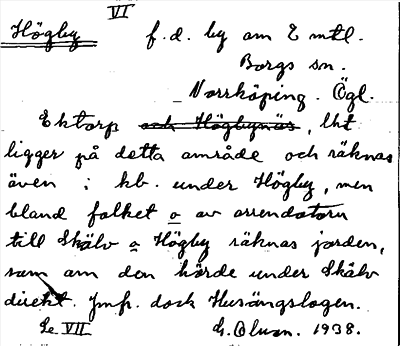 VI
Högby f.d. by om 2 mtl.
Borgs sn.
Norrköping. Ögl.
Ektorp och Högbynäs, lht
ligger på detta område och räknas
även i kb. under Högby, men
bland folket o av arrendatorn
till Skälv o Högby räknas jorden,
som om den hörde under Skälv
direkt. Jmfr. dock Husängslogen.
Se VII G. Olson. 1938.